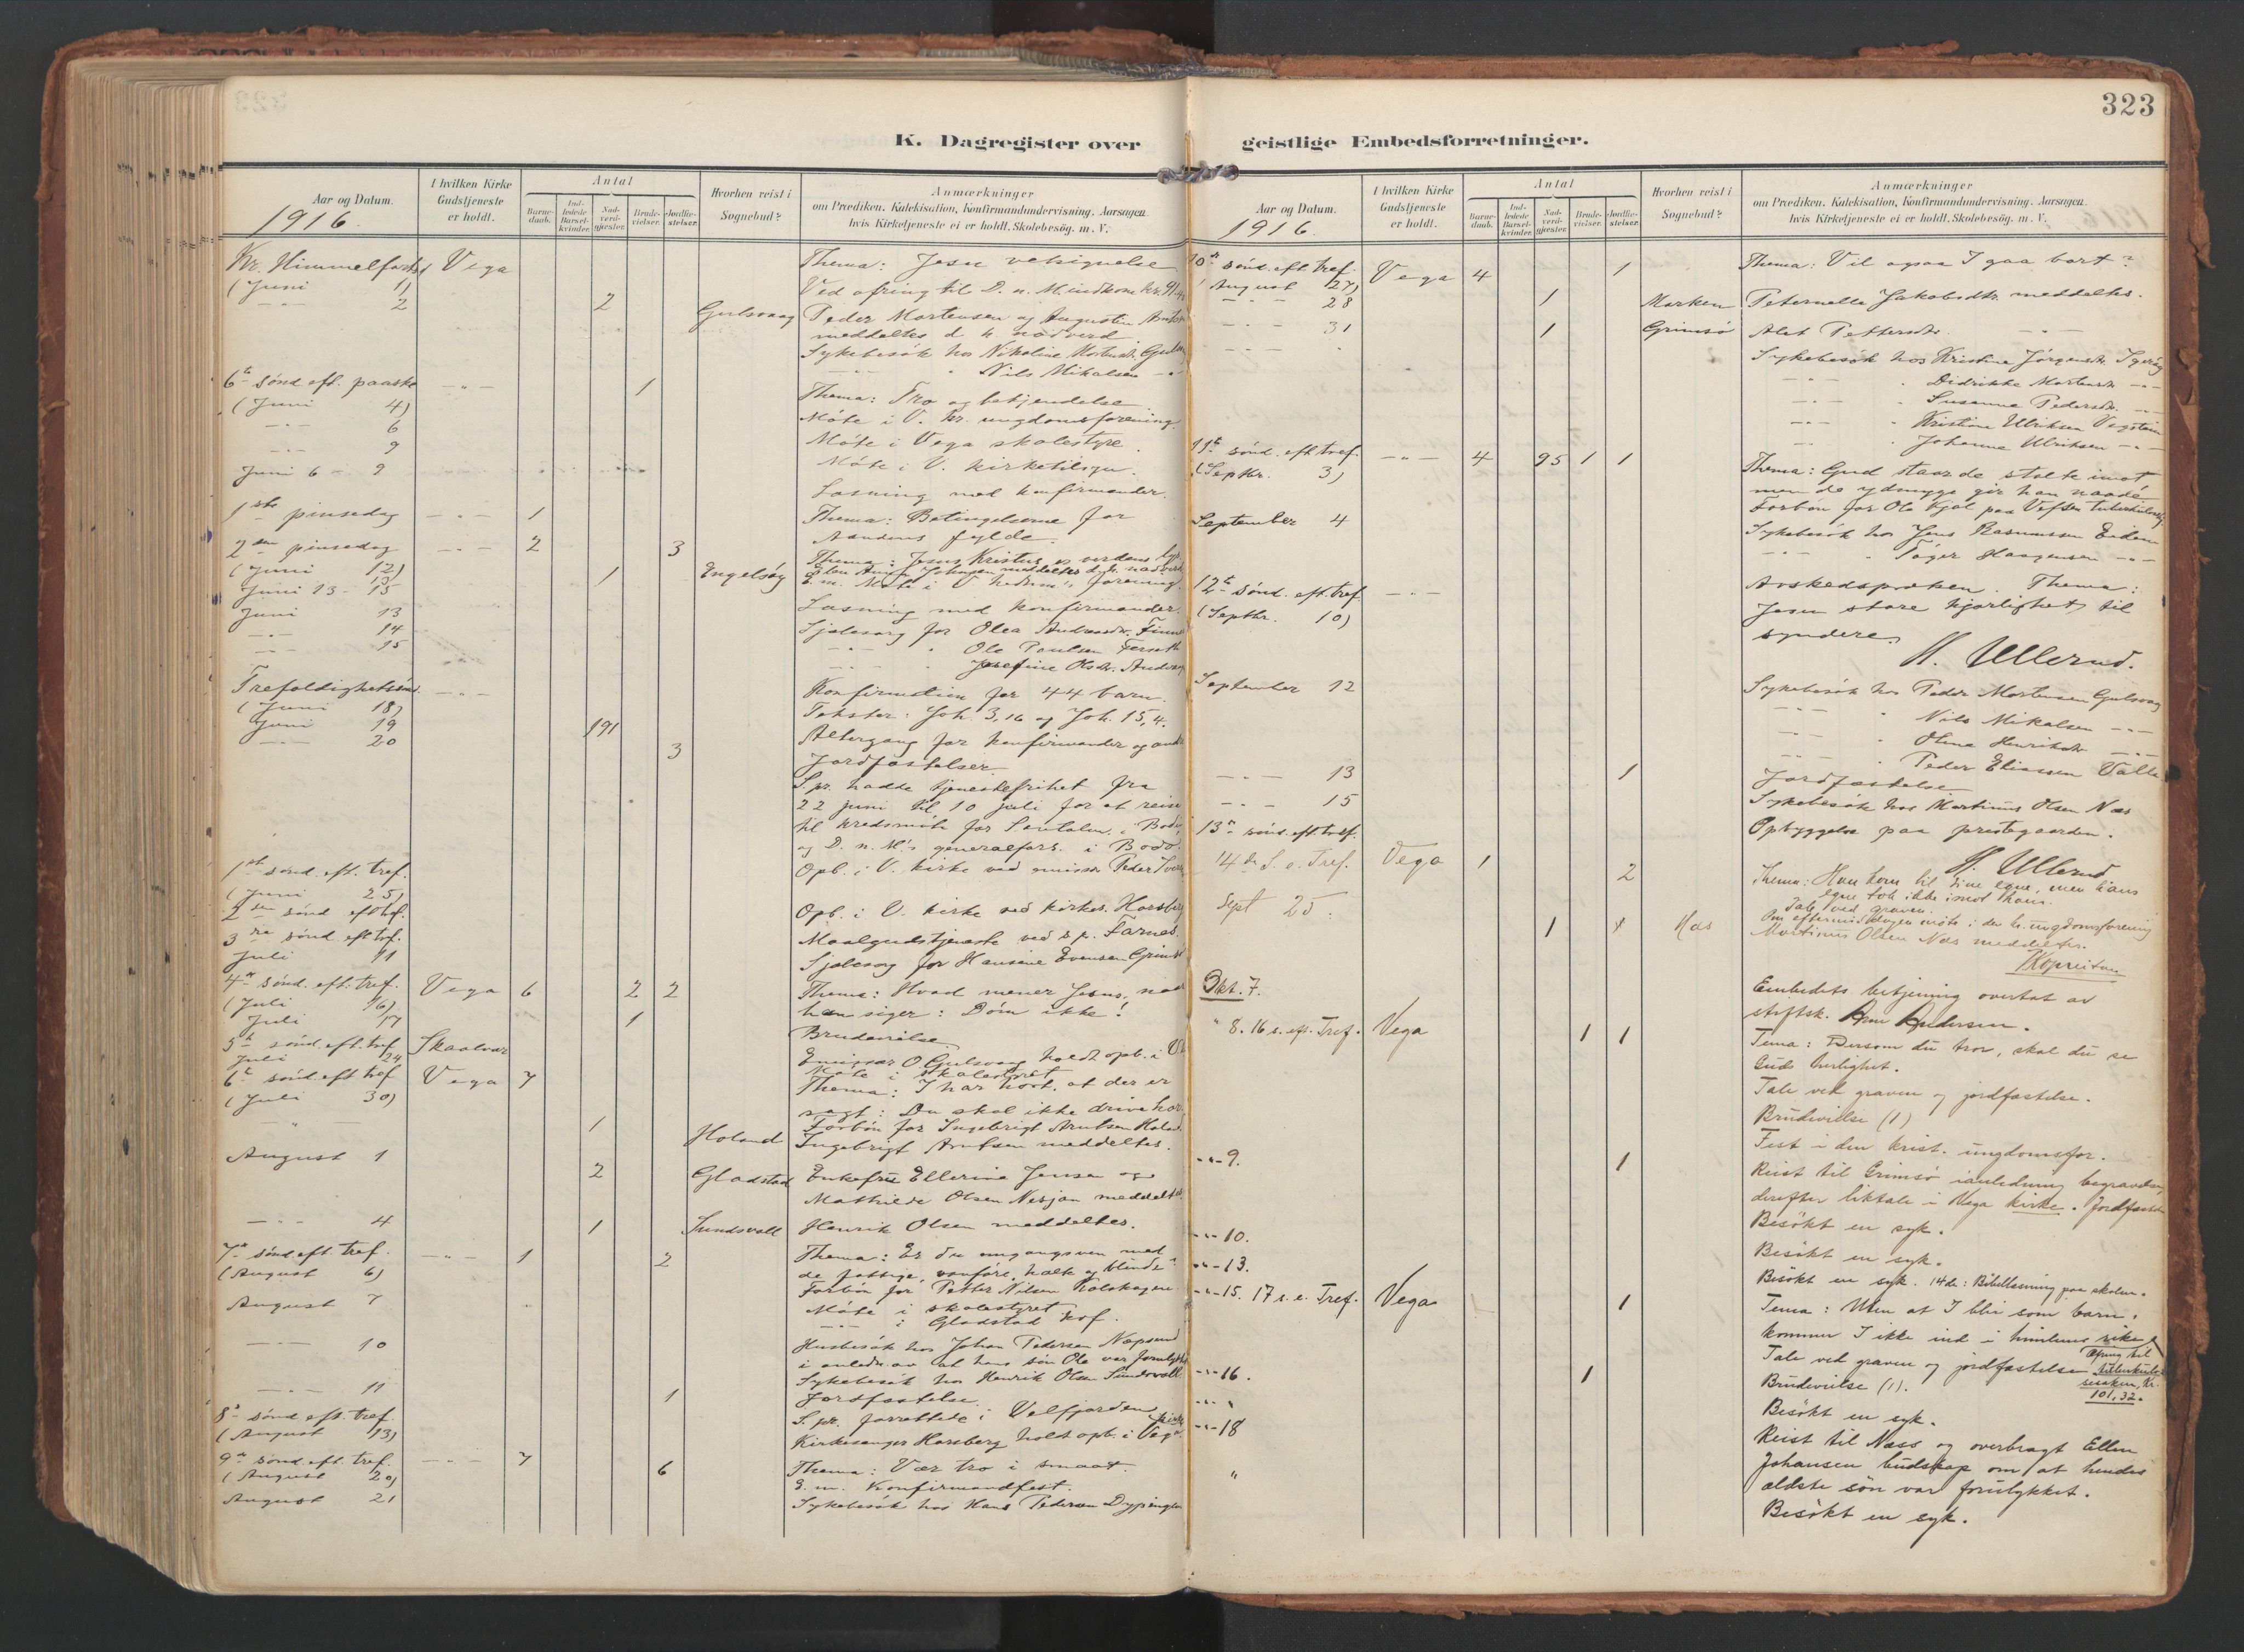 323
K. Dagregister over geistlige Embedsforretninger.
Aar og Datum.
1916.
I hvilken Kirke Gudstjeneste er holdt.
Antal
Barnedaab.
Indledede Barselkvinder.
Nadverdgjester.
Brudevielser.
Jordfæstelser.
Hvorhen reist i Sognebud?
Anmærkninger
om Prædiken, Katekisation, Konfirmandundervisning, Aarsagen,
hvis Kirketjeneste ei er holdt, Skolebesøg, m. V.
Kr. Himmelfartsd Vega Thema: Jesu velsignelse
(Juni 1) Ved ofring til D. n. M. indkom kr.
— 2 2 Gulsvaag Peder Mortensen og Augustin
meddeltes d. h. nadverd
Sykebesøk hos Nikoline
—"— " Nils Mikalsen —"—
6te sønd. eft. paaske —"— 1 Thema: Tro og bekjendelse
(Juni 4) Møte i V. kr. ungdomsforening.
—"— 6 Møte i Vega skolestyre.
—"— 9 Møte i V. kirketilsyn.
Juni 6 - 9 Læsning med konfirmander.
1ste pinsedag —"— 1 Thema: Betingelserne for
Aandens fylde.
2den pinsedag —"— 2 3 Thema: Jesus Kristus og verdens
(Juni 12)
13 1 Engelsøy meddeltes d. h. nadverd
E. m. Møte i V. forening.
Juni 13 - 15 Læsning med konfirmander.
Juni 13 Sjælesorg for Olea
—"— 14 —"— " Ole Paulsen
—"— 15 —"— " Josefine Olsdr.
Trefoldighetssønd. —"— Konfirmation for 44 barn.
(Juni 18) Tekster: Joh. 3,16 og Joh. 15,4.
Juni 19 191 Altergang for konfirmander og andre
—"— 20 3 Jordfæstelser.
S. pr. hadde tjenestefrihet fra
22 juni til 10 juli for at reise
til kredsmøte for Santalm. i Bodø
og D. n. M.'s generalfors. i Bodø.
1ste sønd. eft. tref. Opb. i V. kirke ved Peder
(Juni 25)
2den sønd. eft. tref. Opb. i V. kirke ved kirkes. Horsberg
3die sønd. eft. tref. Maalgudstjeneste ved s. p. Farnes.
Juli 11 Sjælesorg for Hansine Evensen
4de sønd. eft. tref. Vega 6 2 2 Thema: Hvad mener Jesus, naar
(Juli 16) han siger: Døm ikke!
Juli 17 1 Brudevielse
5te sønd. eft. tref. Skaalvær Emissær O. Gulsvaag holdt opb. i
Juli 24 Møte i skolestyret
6te sønd. eft. tref. Vega 7 Thema: I har hørt, at der er
(Juli 30) sagt: Du skal ikke drive hor.
Forbøn for Ingebrigt Arntsen
—"— 1 Holand Ingebrigt Arntsen meddeltes.
August 1 2 Gladstad Enkefru Ellerine Jensen og
Mathilde Olsen meddeltes
—"— 4 1 Sundsvoll Henrik Olsen meddeltes.
7de sønd. eft. tref. —"— 1 2 Thema: Er du omgangsven med
(August 6) de fattige, vanføre, halte og blinde?
Forbøn for Petter Nilsen
August 7 Møte i skolestyret
—"— i Gladstad kof.
—"— 10 Husbesøk hos Johan Pedersen
i anledn. av at hans søn Ole var forulykket
Sykebesøk hos Henrik Olsen Sundsvoll
—"— 11 1 Jordfæstelse.
8de sønd. eft. tref. S. pr. forrettede i Velfjorden
(August 13) Kirkesanger Horsberg holdt opb. i Vega kirke
9de sønd. eft. tref. —"— 7 6 Thema: Vær tro i smaat.
(August 20) E. m. Konfirmandfest.
August 21 Sykebesøk hos Hans Pedersen
Aar og Datum.
1916.
I hvilken Kirke Gudstjeneste er holdt.
Antal
Barnedaab.
Indledede Barselkvinder.
Nadverdgjester.
Brudevielser.
Jordfæstelser.
Hvorhen reist i Sognebud?
Anmærkninger
om Prædiken, Katekisation, Konfirmandundervisning, Aarsagen,
hvis Kirketjeneste ei er holdt, Skolebesøg, m. V.
10de sønd. eft. tref. Vega 4 1 Thema: Vil ogsaa I gaa bort?
(August 27)
—"— 28 1 Marken Peternelle Jakobsdtr. meddeltes.
—"— 31 1 Grimsø Alet Pettersdtr. —"—
—"— Sykebesøk hos Kristine Jørgensdtr.
—"— " Didrikke —"—
—"— " Susanne Pedersdtr. —"—
—"— " Kristine Ulriksen Vegstein
—"— " Johanne Ulriksen —"—
11te sønd. eft. tref. —"— 4 95 1 1 Thema: Gud staar de stolte imot
(Septbr. 3) men de ydmyge gir han naade.
Forbøn for Ole
September 4 Sykebesøk hos Jens Rasmussen Eidem
—"— " Haagensen —"—
12te sønd. eft. tref. —"— Avskedspræken. Thema:
(Septbr. 10) Jesu store kjærlighet til
syndere.
H. Ullerud.
September 12 Sykebesøk hos Peder Mortensen Gulsvaag
—"— " Nils Mikalsen —"—
—"— " Olina Henriksdtr. —"—
—"— " Peder Eliassen
—"— 13 1 Jordfæstelse
—"— 15 Sykebesøk hos Martinus Olsen Næs
13de sønd. eft. tref. Opbyggelse paa prestegaarden.
H. Ullerud
14de S. e. Tref. Vega 1 2 Thema: Han kom til sine egne, men hans
egne tok ikke imot ham.
Tale ved graven.
Om eftermiddagen møte i den kr. ungdomsforening
Sept 25. 1 Næs Martinus Olsen Næs meddeltes.
Kopreitan
Okt. 7. Embedets betjening overtat av
stiftsk. Andersen.
" 8. 16 s. eft. Tref. Vega 1 1 Tema: Dersom du tror, skal du se
Guds herlighet.
Tale ved graven og jordfæstelse.
Brudevielse (1)
Fest i den krist. ungdomsfor.
-"- 9. 1 Reist til Grimsø i anledning begravelse,
derefter liktale i Vega kirke. Jordfæstelse
Besøkt en syk.
-"- 10. Besøkt en syk.
-"- 13. Besøkt en syk. 14de: Bibellæsning paa skolen.
-"- 15. 17 s. e. Tref. Vega 1 Tema: Uten at I blir som barn,
kommer I ikke ind i himlens rike.
Tale ved graven og jordfæstelse.
Ofring til tuberkulosesaken, Kr. 101,32.
-"- 16. 1 Brudevielse (1).
-"- " Besøkt en syk.
-"- 18 Reist til Næss og overbragt Ellen
Johansen budskap om at hendes
ældste søn var forulykket.
" Besøkt en syk.